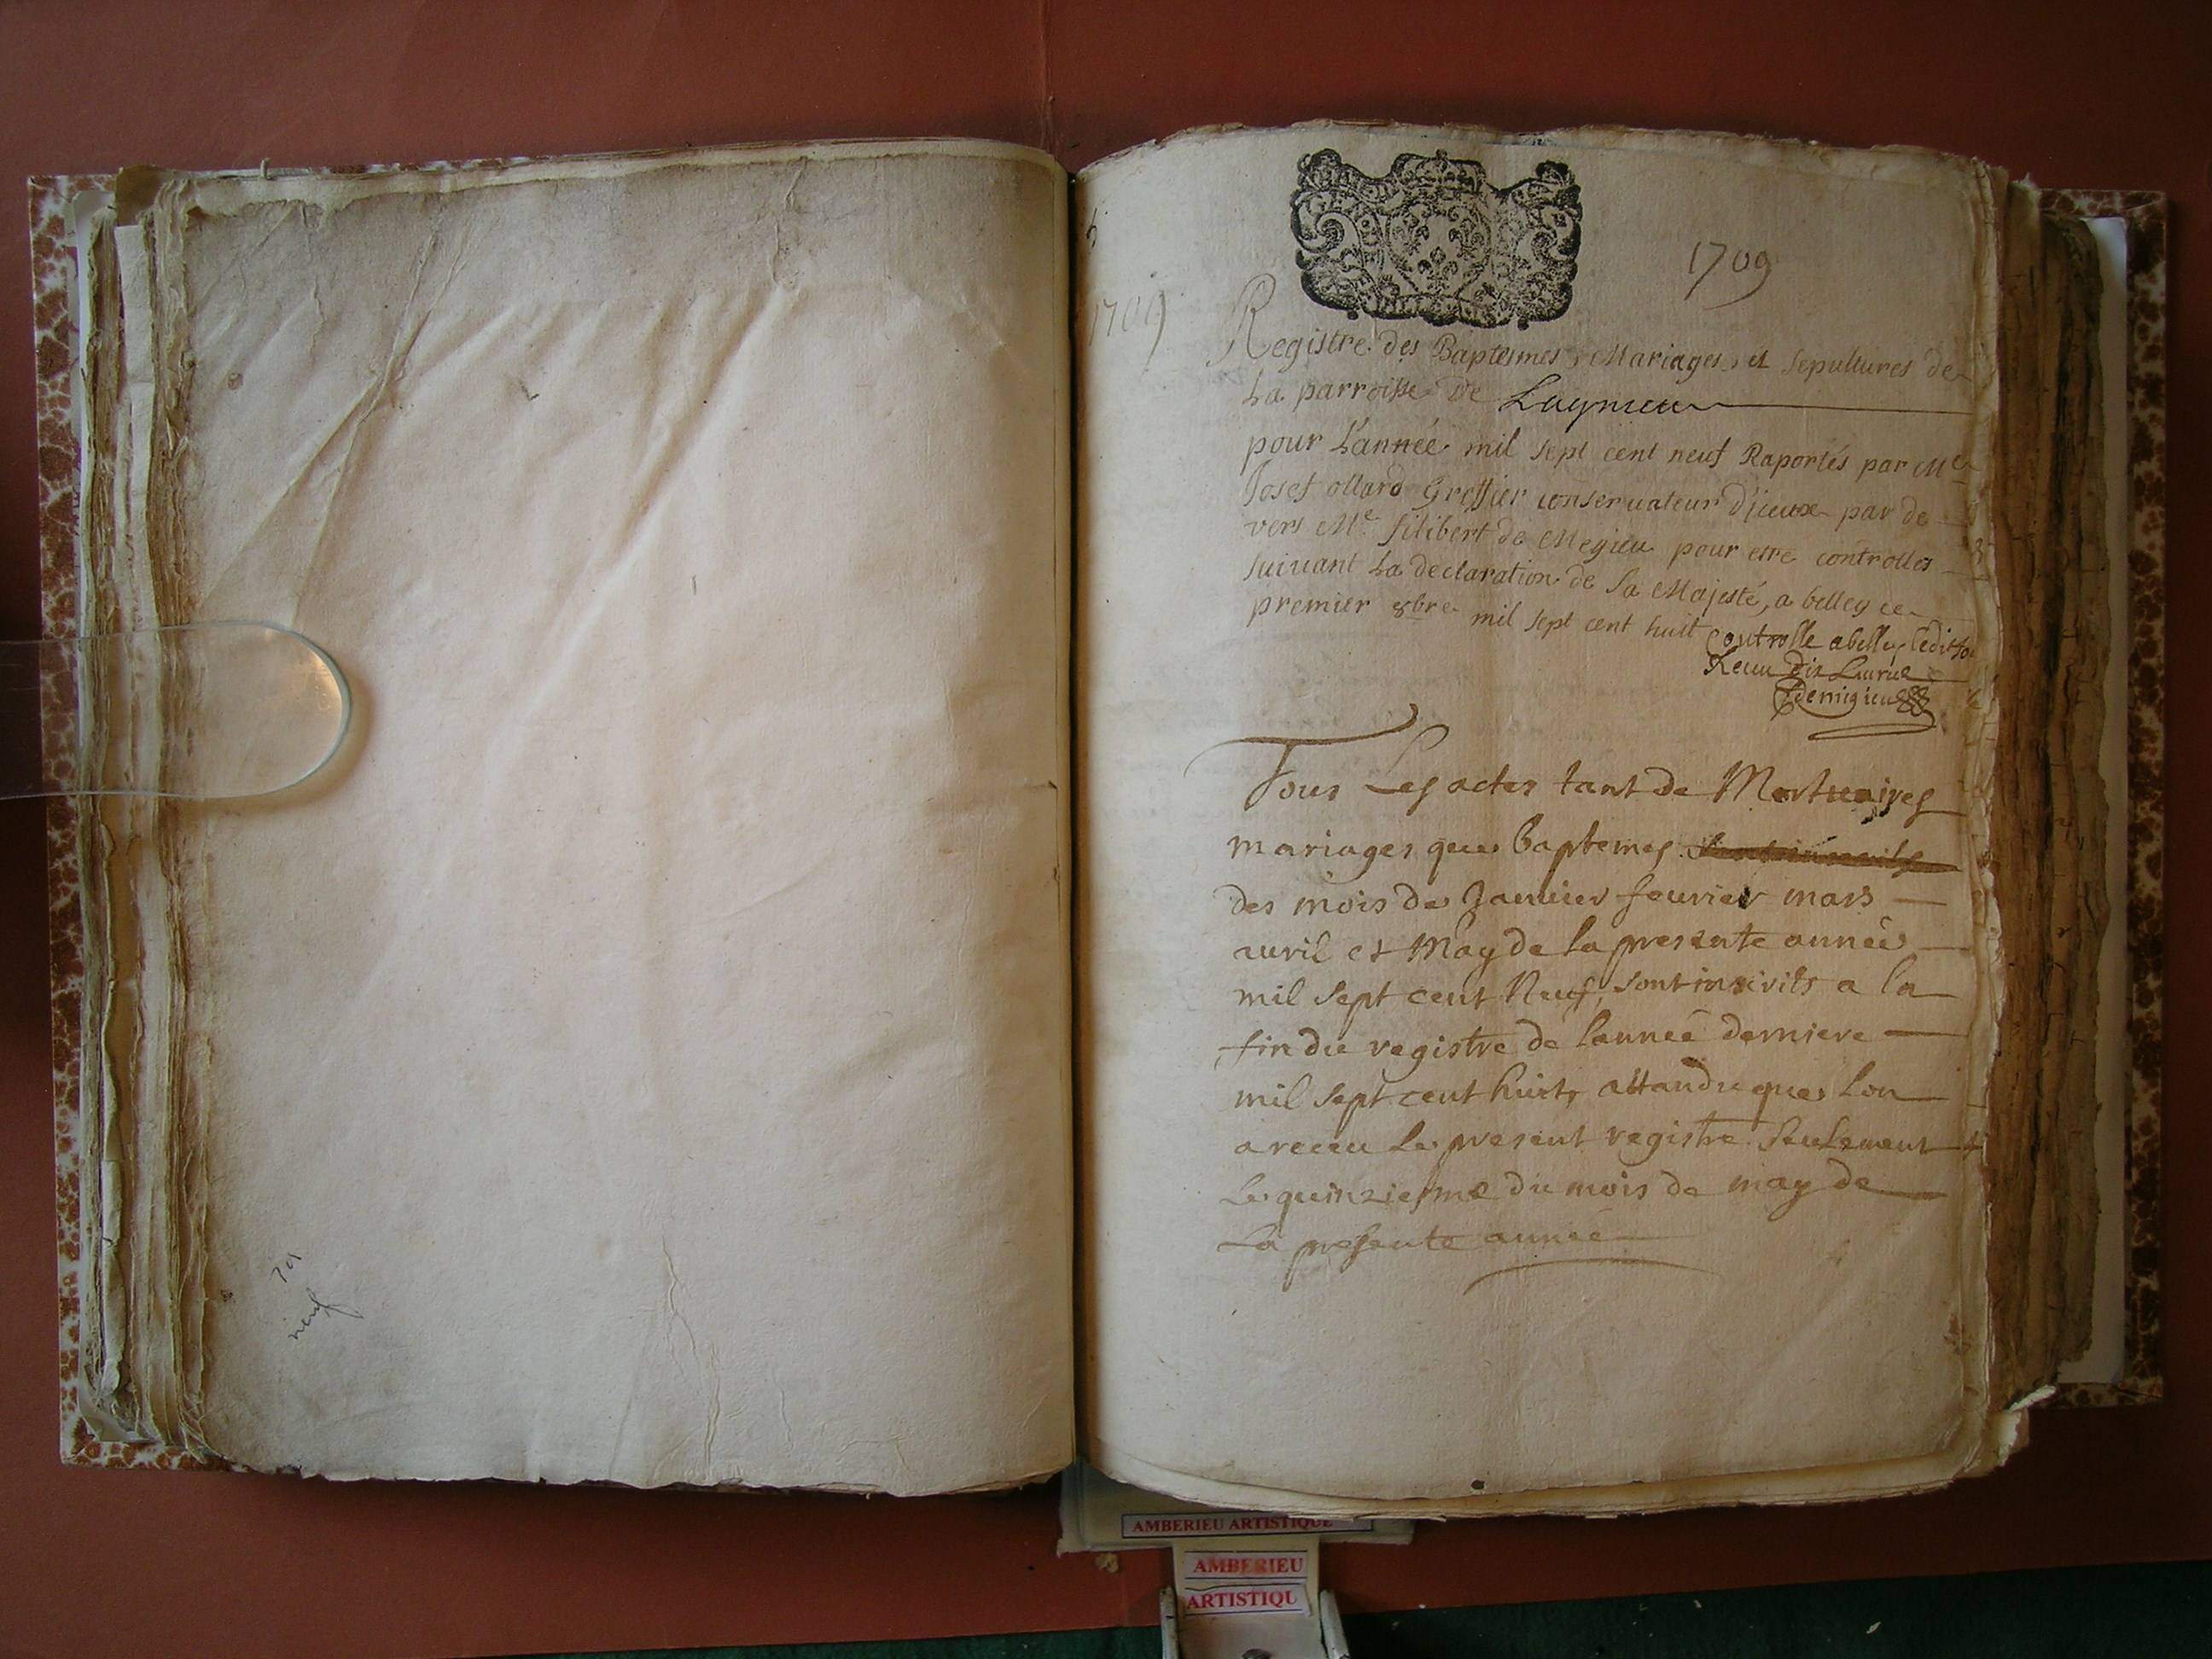 70
neuf
1709
1709
Registre des Baptesmes, Mariages, et sepultures de
La parroisse de Lagnieu
pour L'année mil sept cent neuf Raportés par Me
Josef ollard Greffier conseruateur d'jceux par de
vers Me. filibert de Megieu pour etre controlles
suiuant La declaration de Sa Majesté, a belley ce
premier 8bre mil sept cent huit
Controlle a belley ledit Jo
Receu dix Liures
Demigieu
Tous Les actes tant de Mortuaires
mariages que Baptemes
des mois de Januier feurier mars
auril et May de la presente année
mil sept cent Neuf, sont inscrits a la
fin du registre de lannée derniere
mil sept cent huit, attandu que lon
a receu le present registre seulement
Le quinziesme du mois de may de
La presente année
AMBERIEU ARTISTIQUE
AMBERIEU
ARTISTIQU